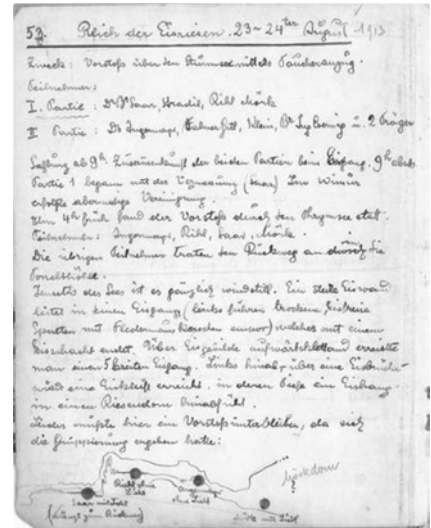 52. Reich der Eisriesen. 23–24ter August 1913
Zweck: Vorstoß über den Sturmsee mittels Taucheranzug.
Teilnehmer:
I. Partie: Dr Saar, Hradil, Rihl Mörk
II Partie: Ds Angermayr, Klein, u. 2 Träger
ab 9h. Zusammenkunft der beiden Partien beim Eingang. 9h abds
Partie 1 begann mit der Vermessung (Saar) Im
erfolgte abermalige Vereinigung.
Um 4h früh fand der Vorstoß durch den statt.
Teilnehmer: Angermayr, Rihl, Saar, Mörk.
Die übrigen Teilnehmer traten den Rückweg an durch die
Jenseits des Sees ist es gänzlich windstill. Eine steile Eiswand
leitet in einen Eisgang (links führen trockene eisfreie
Spalten mit Fledermaus empor) welcher mit einem
Eisschacht endet. Über Eis aufwärtskletternd erreichte
man einen 5 breiten Eisgang. Links hinab, über eine Eisbrücke
wird eine Eiskluft erreicht, in deren Tiefe ein Eishang
in einen Riesendom hinabführt.
Leider mußte hier ein Vorstoß unterbleiben, da sich
die Gruppierung ergeben hatte:
Rihl ohne Licht
ohne Licht
Mörkdom
Saar mit Licht
Mörk mit Licht